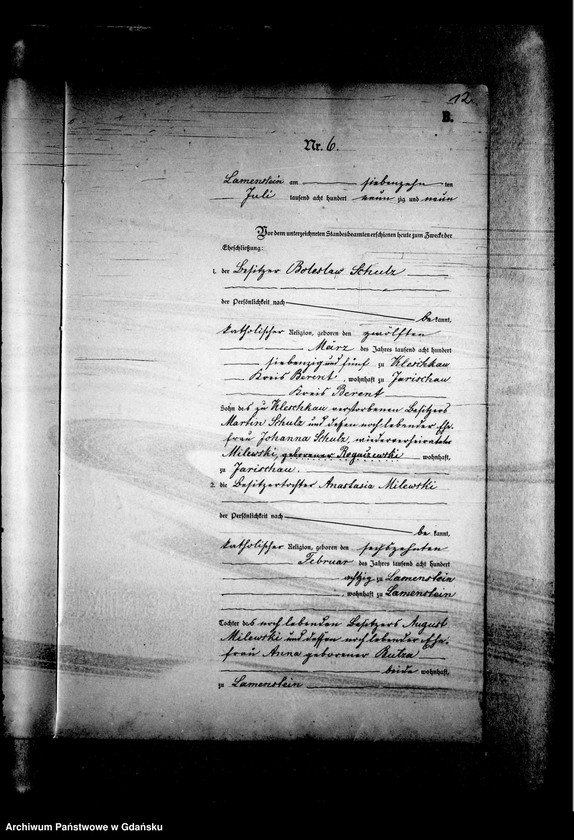 12
B.
Nr. 6.
Lamenstein am siebenzehn ten
Juli tausend acht hundert neun zig und neun
Vor dem unterzeichneten Standesbeamten erschienen heute zum Zwecke der
Eheschließung:
1. der Besitzer Boleslaw Schulz
der Persönlichkeit nach
be kannt,
katholischer Religion, geboren den zwölften
März des Jahres tausend acht hundert
siebenzig und fünf zu Kleschkau
Kreis Berent, wohnhaft zu Jarischau
Kreis Berent
Sohn des zu Kleschkau verstorbenen Besitzers
Martin Schulz und dessen noch lebender Ehe-
frau Johanna Schulz, wiederverheirathete
Milewski, geborener Roguszewski wohnhaft,
zu Jarischau.
2. die Besitzertochter Anastasia Milewski
der Persönlichkeit nach
be kannt,
katholischer Religion, geboren den sechszehnten
Februar des Jahres tausend acht hundert
achtzig zu Lamenstein
, wohnhaft zu Lamenstein
Tochter des noch lebenden Besitzers August
Milewski und dessen noch lebender Ehe-
frau Anna geborener
beide wohnhaft,
zu Lamenstein
Archiwum Państwowe w Gdańsku